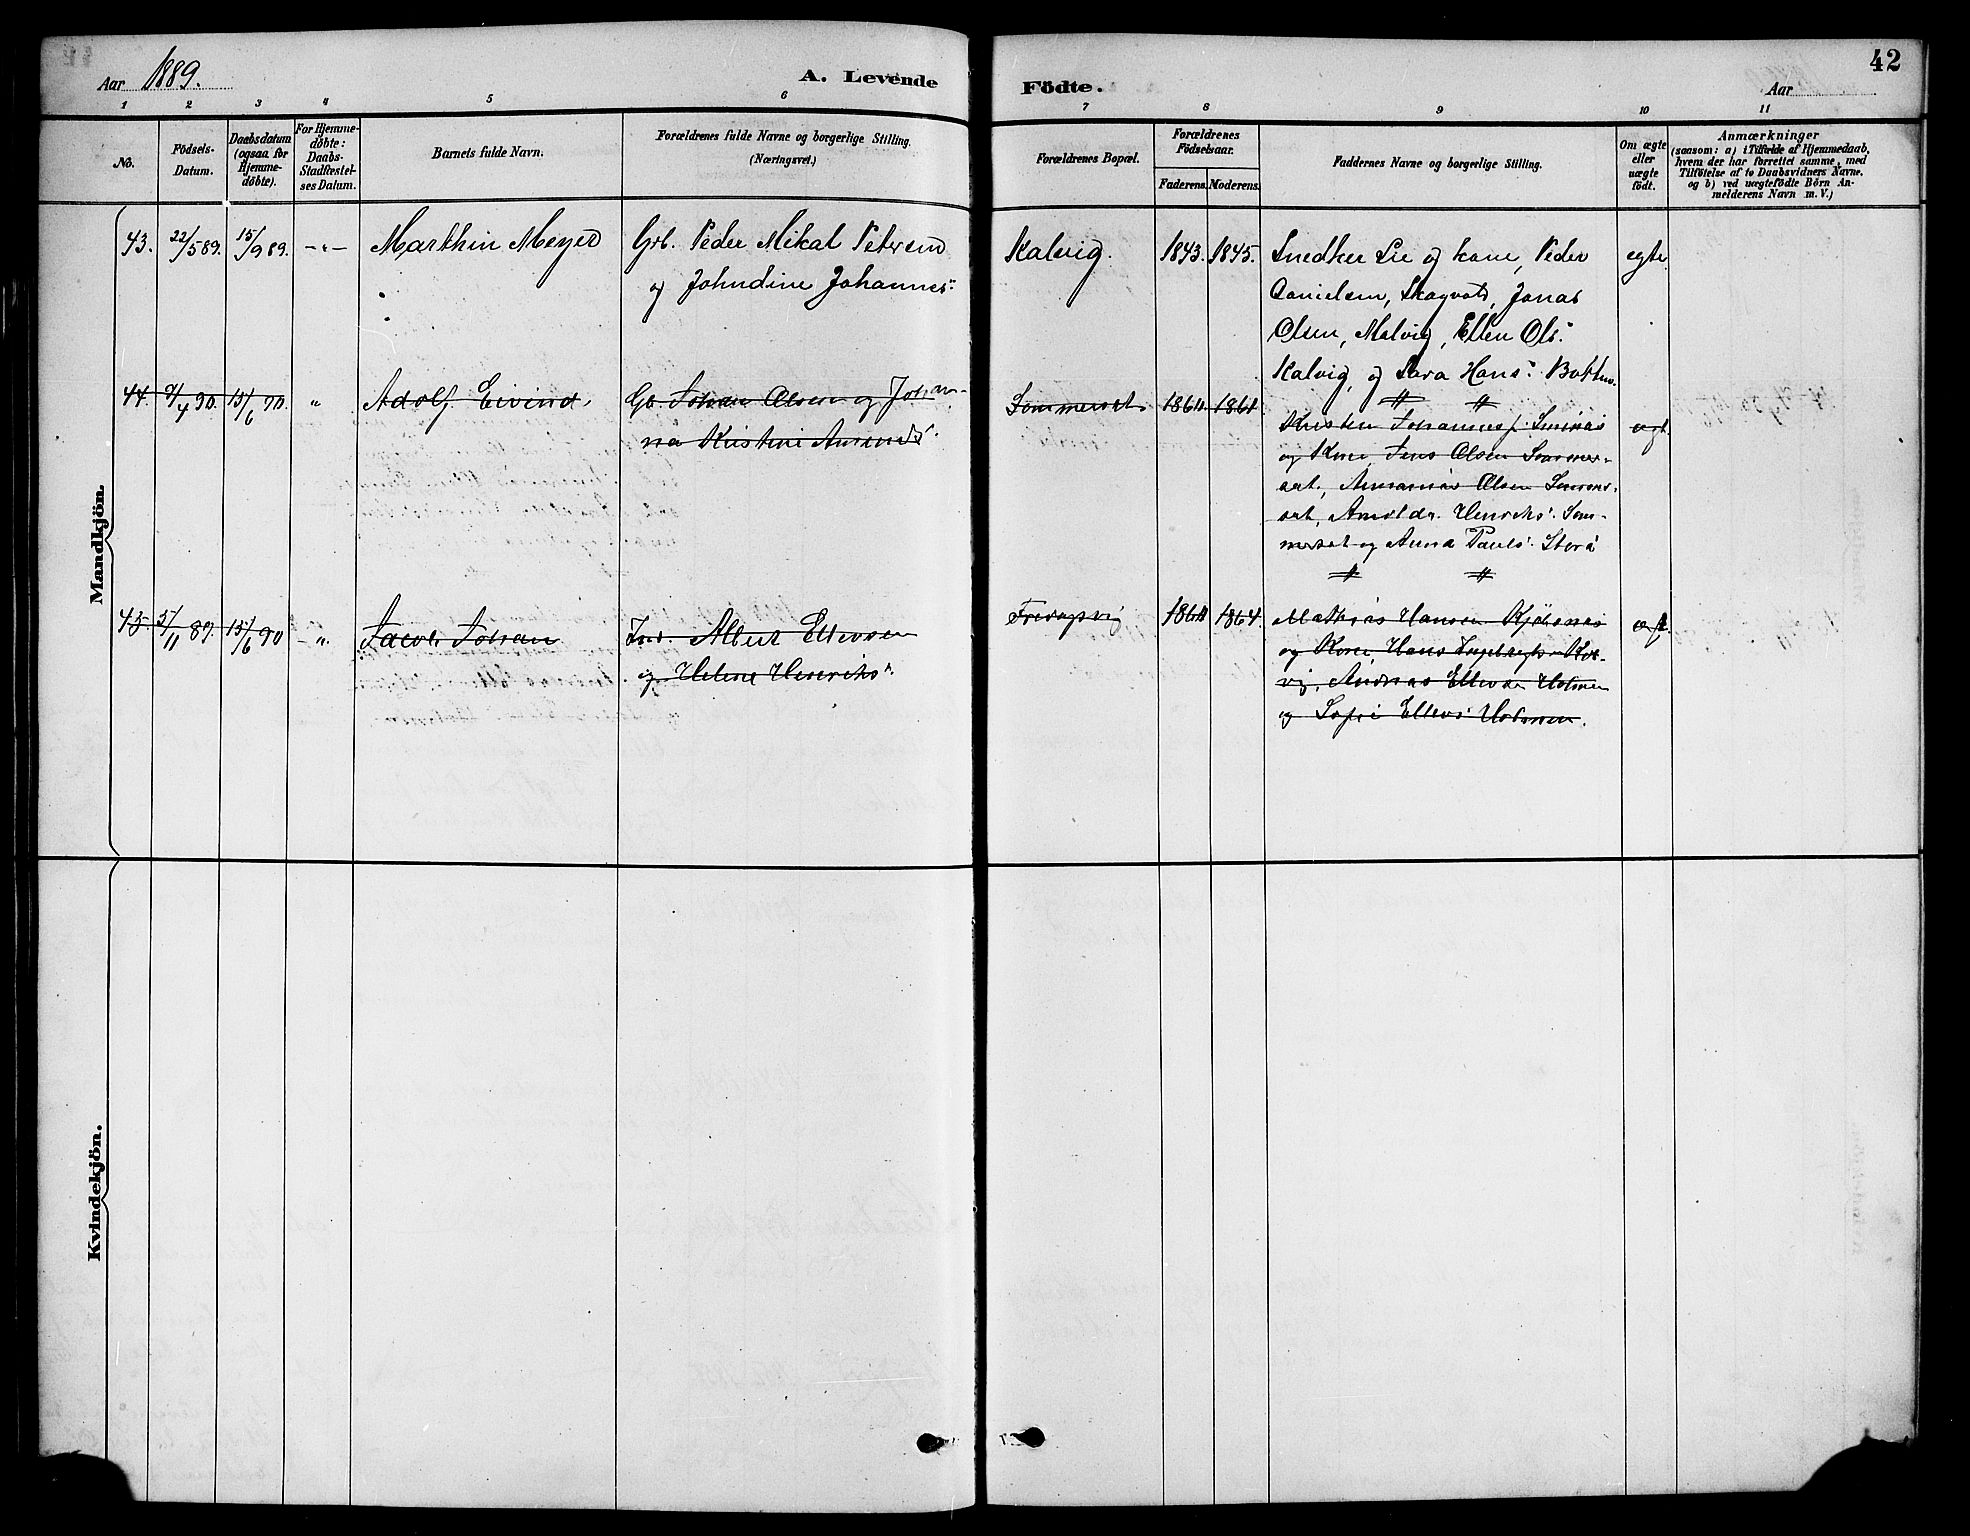 Aar 1889.
A. Levende
Födte.
Aar
42
1 2 3 4 5 6 7 8 9 10 11
No.
Födsels-
Datum.
Daabsdatum
(ogsaa for
Hjemme-
döbte).
For Hjemme-
döbte:
Daabs-
Stadfæstel-
ses Datum.
Barnets fulde Navn.
Forældrenes fulde Navne og borgerlige Stilling.
(Næringsvei.)
Forældrenes Bopæl.
Forældrenes
Födselsaar.
Faderens. Moderens.
Faddernes Navne og borgerlige Stilling.
Om ægte
eller
uægte
födt.
Anmærkninger
(saasom: a) i Tilfælde af Hjemmedaab,
hvem der har forrettet samme, med
Tilföielse af to Daabsvidners Navne,
og b) ved uægtefödte Börn An-
melderens Navn m. V.)
Mandkjön.
43. 22/5 89. 15/9 89. -"- Marthin Meyer Grb. Peder Mikal Petersen Kalvig. 1843. 1845. Snedker Lie og kone, Peder egte.
og Johndine Johannes:
Danielsen, Skagvold, Jonas
Olsen, Malvig, Ellen Ols:
Kalvig, og Sara Hans:
44. 9/4 90. 15/6 90. " Adolf Eivind, Gb. Johan Olsen og Johan- Sommerset 1864. 1861
na Kristine
og Kone, Jens Olsen Sommer-
set, Olsen
set, Henriks: Som-
merset og Anna Pauls: Storå
45. 5/11 89. 15/6 90 -". Jacob Johan Albert Ellevsen 1864 1864. Mathias Hansen
og Helene Henriks:
og Kone, Hans
vig, Andreas Ellevsen Holmen
og Sofie Ellevs: Holmen.
Kvindekjön.